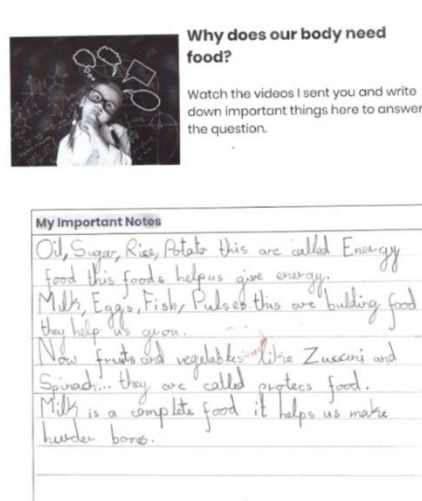 Why does our body need
food?
Watch the videos I sent you and write
down important things here to answer
the question.
My Important Notes
Oil, Sugar, Rice, Potato this are called Energy
food this foods help us give energy.
Milk, Eggs, Fish, Pulses this are bulding food
they help us grow.
Now fruits and vegelables like Zuccini and
Spinach... they are called protecs food.
Milk is a complete food it helps us make
harder bones.